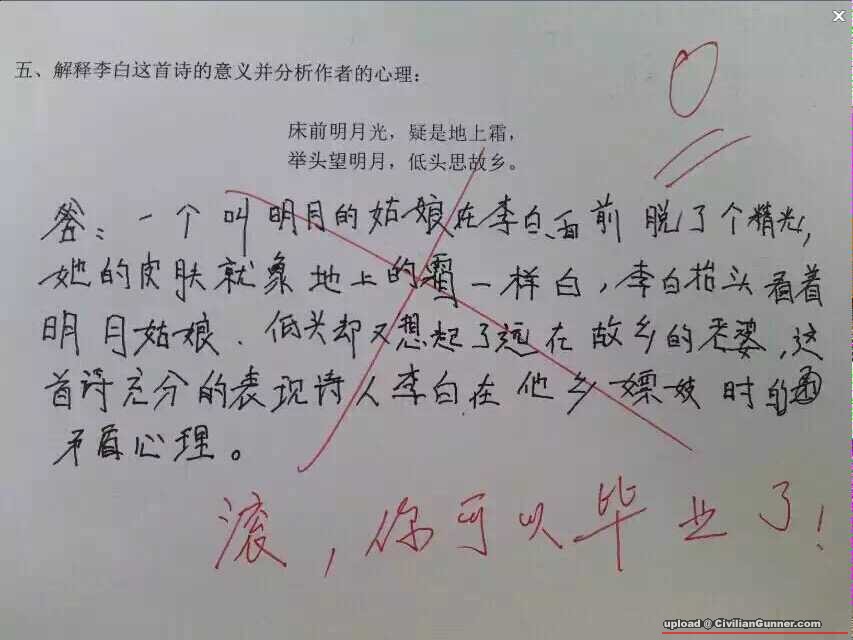 五、解释李白这首诗的意义并分析作者的心理:
床前明月光，疑是地上霜，
举头望明月，低头思故乡。
答:一个叫明月的姑娘在李白面前脱了个精光,
她的皮肤就象地上的霜一样白,李白抬头看着
明月姑娘.低头却又想起了远在故乡的老婆,这
首诗充分的表现诗人李白在他乡嫖妓时的
矛盾心理。
滚,你可以毕业了!
upload @ CivilianGunner.com